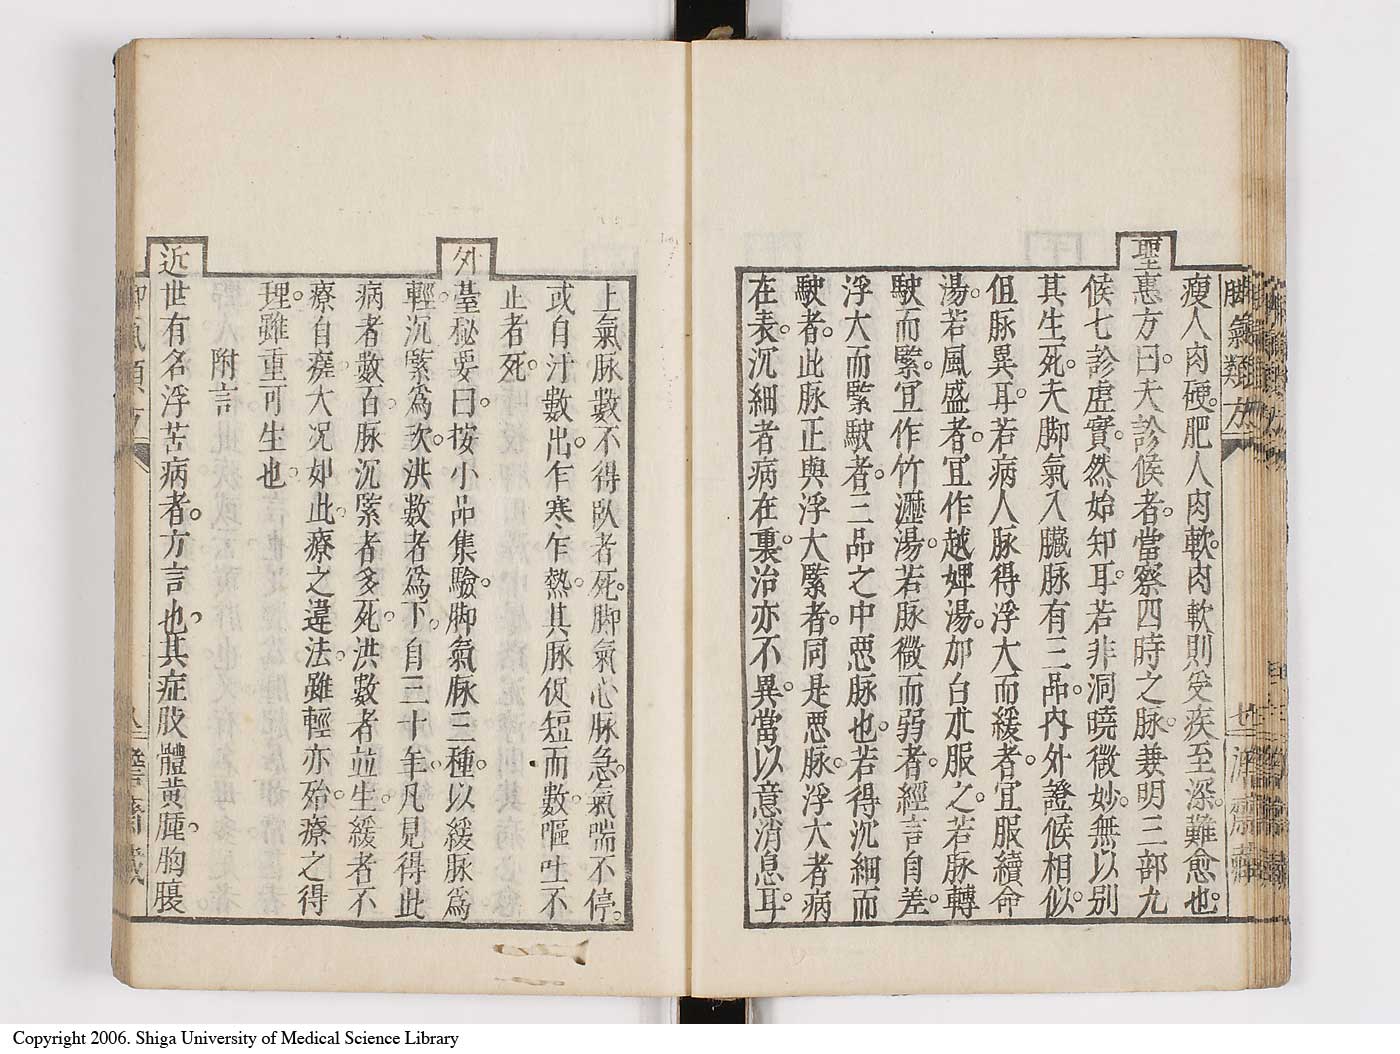 脚氣類方
瘦人肉硬。肥人肉軟。肉軟則受疾至深。難愈也。
聖惠方曰。夫診候者。當察四時之脉。兼明三部九
候七診虛實。然始知耳。若非洞曉微妙。無以別
其生死。夫脚氣入臟脉有三品。內外證候相似。
但脉異耳。若病人脉得浮大而緩者。宜服續命
湯。若風盛者。宜作越婢湯。加白朮服之。若脉轉
駛而緊。宜作竹瀝湯。若脉微而弱者。經言自差。
浮大而緊駛者。三品之中惡脉也。若得沉細而
駛者。此脉正與浮大緊者。同是惡脉。浮大者病
在表。沉細者病在裏。治亦不異。當以意消息耳。
上氣脉數不得臥者死。脚氣心脉急。氣喘不停。
或自汗數出。乍寒乍熱。其脉促短而數。嘔吐不
止者死。
外臺秘要曰。按小品集驗。脚氣脉三種。以緩脉爲
輕。沉緊爲次。洪數者爲下。自三十年。凡見得此
病者數百。脉沉緊者多死。洪數者並生。緩者不
療自瘥。大况如此。療之違法。雖輕亦殆。療之得
理。雖重可生也。
附言
近世有名浮苦病者。方言也。其症肢體黃腫。胸腹